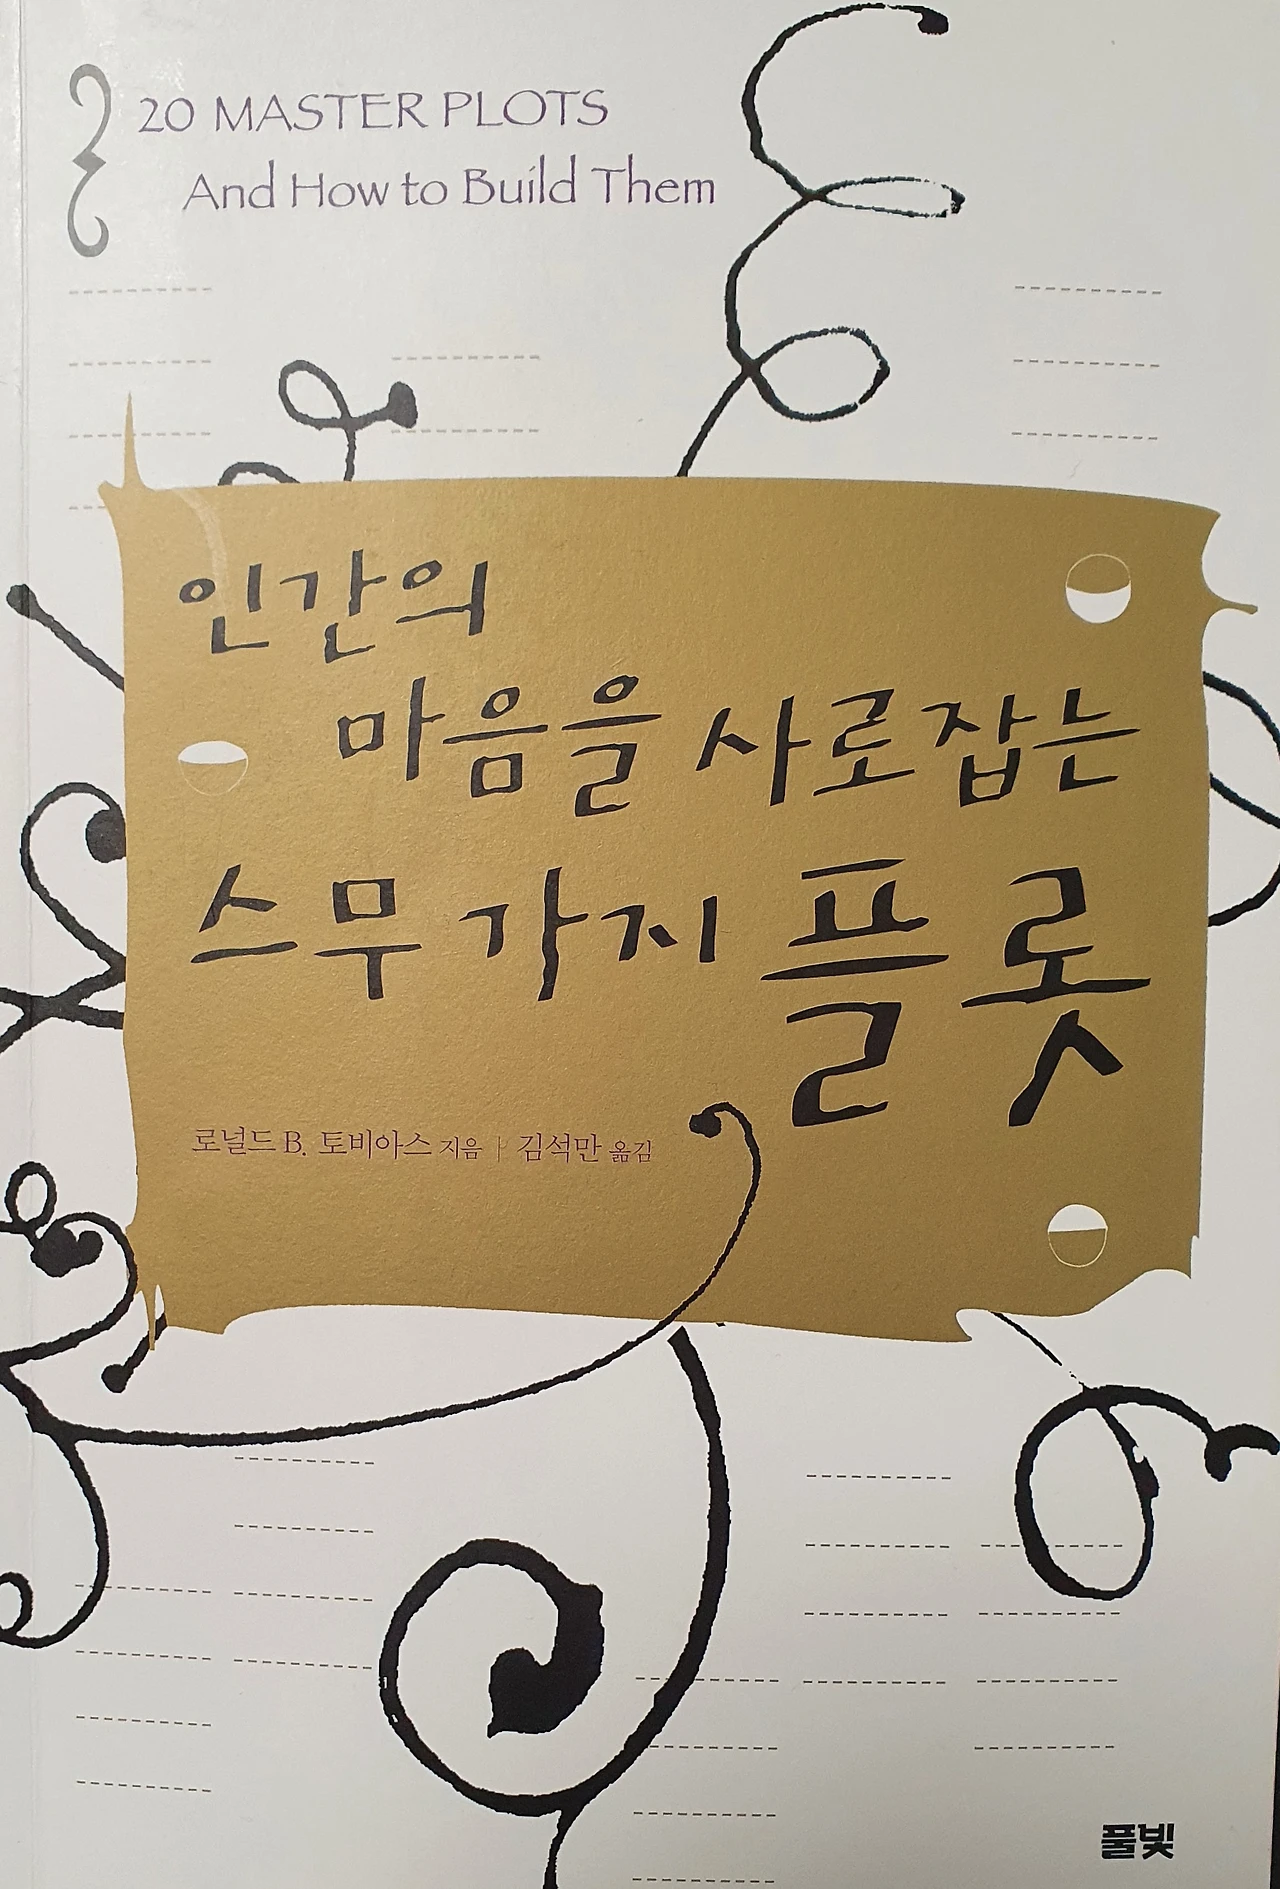 20 MASTER PLOTS
And How to Build Them
인간의
마음을 사로잡는
스무 가지 플롯
로널드 B. 토비아스 지음 | 김석만 옮김
풀빛